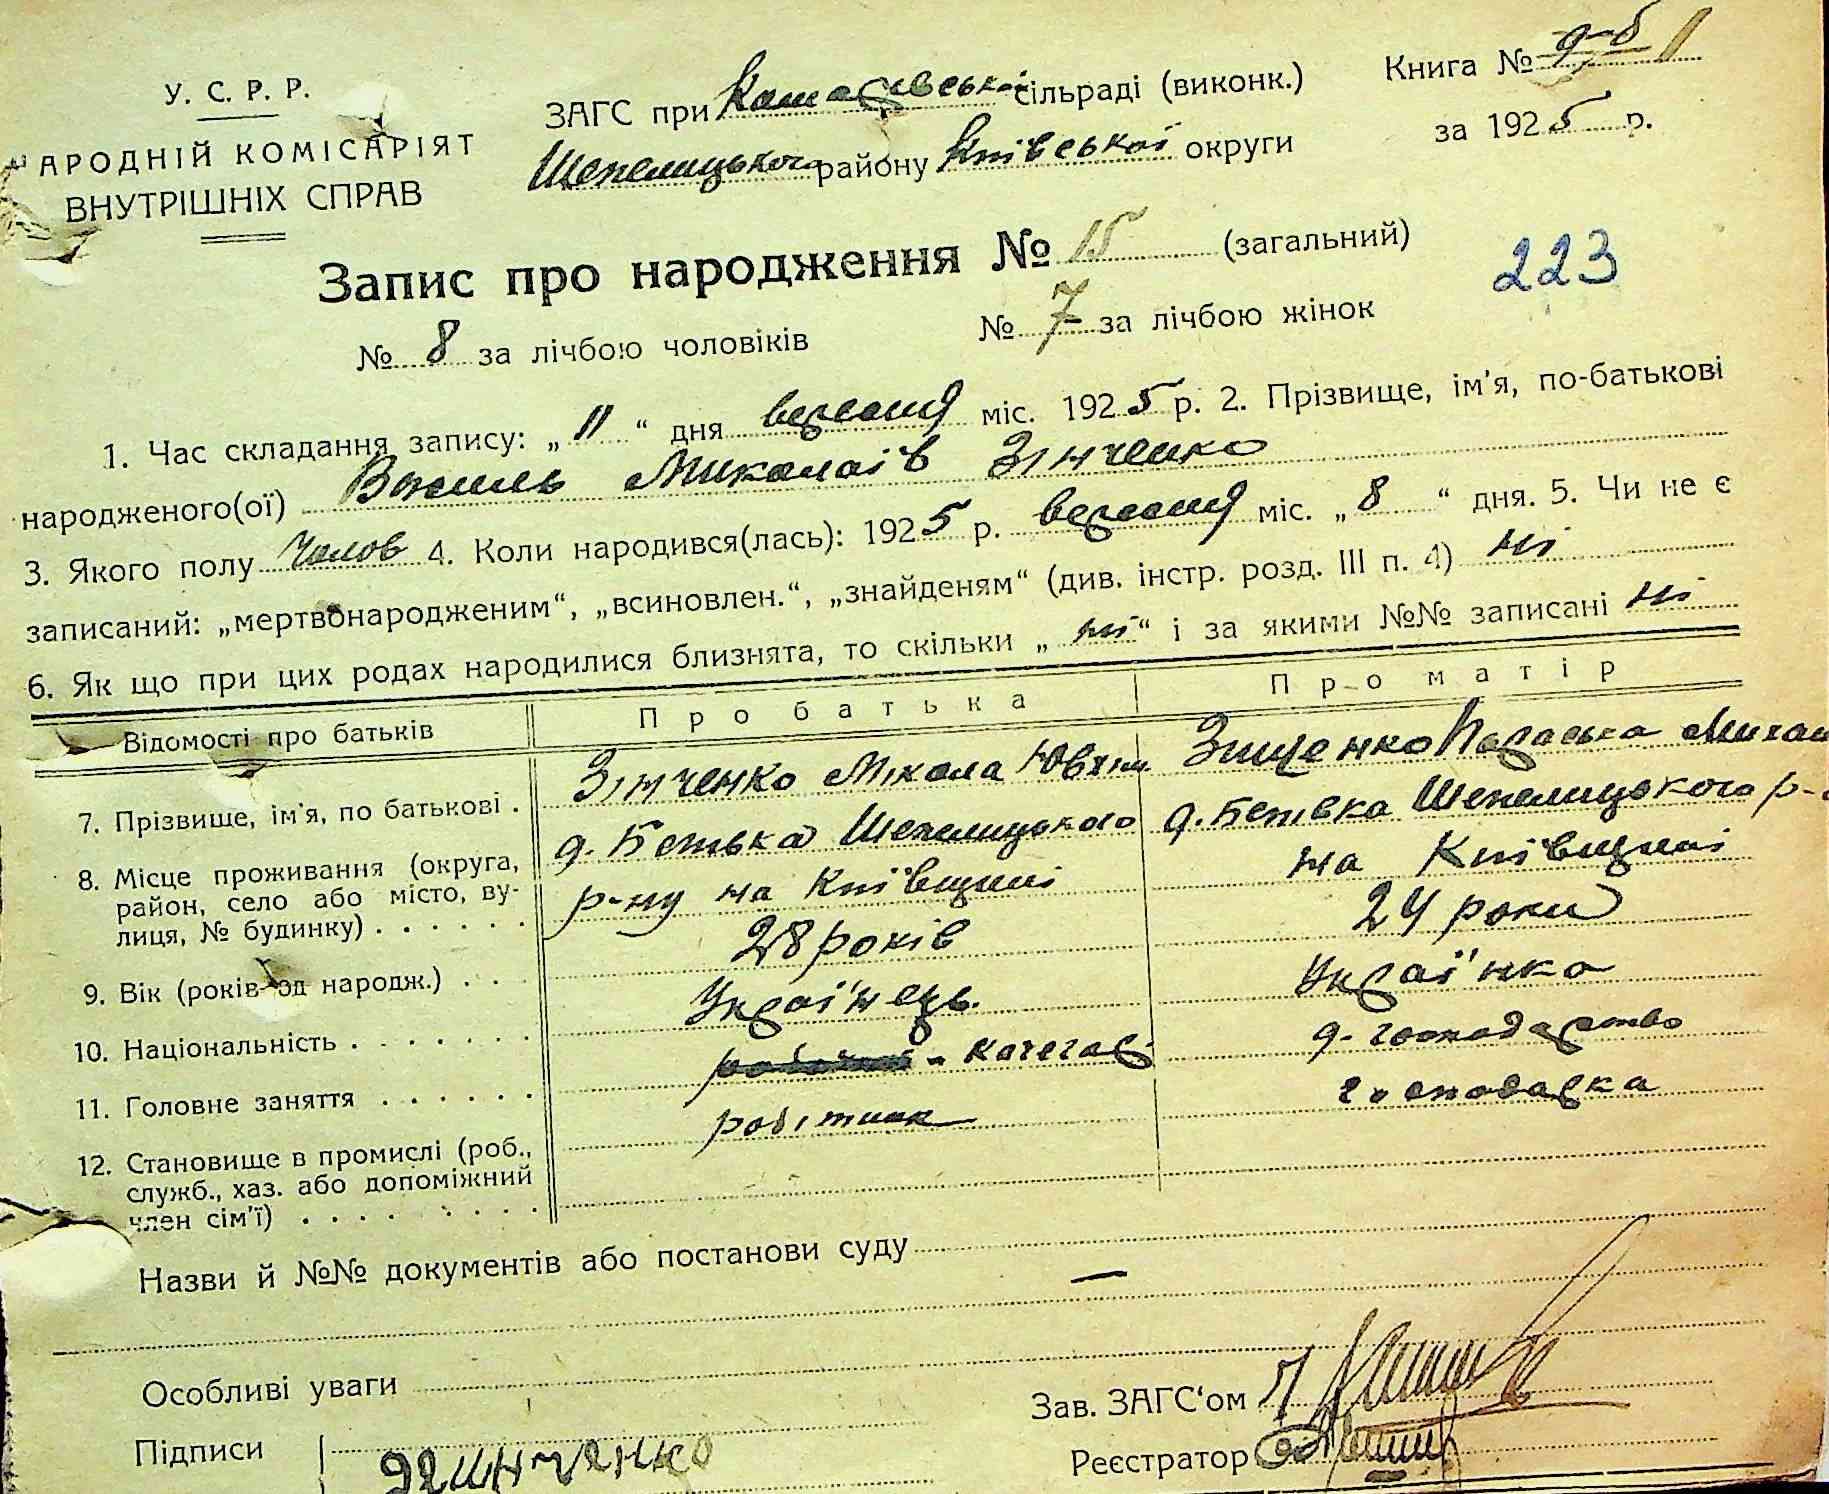 У. С. Р. Р.
НАРОДНІЙ КОМІСАРІЯТ
ВНУТРІШНІХ СПРАВ
ЗАГС при сільраді (виконк.)
Шепелицького району Київської округи
Книга №
за 1925 р.
Запис про народження № 15 (загальний)
223
№ 8 за лічбою чоловіків № 7 за лічбою жінок
1. Час складання запису: „11“ дня вересня міс. 1925 р. 2. Прізвище, ім'я, по-батькові
народженого(ої) Василь Миколаїв Зінченко
3. Якого полу Чолов 4. Коли народився(лась): 1925 р. вересня міс. „8“ дня. 5. Чи не є
записаний: „мертвонародженим“, „всиновлен.“, „знайденям“ (див. інстр. розд. III п. 4) ні
6. Як що при цих родах народилися близнята, то скільки „ні“ і за якими №№ записані ні
Відомості про батьків Про батька Про матір
7. Прізвище, ім'я, по батькові . Зінченко Мікола Ювхім Зинценко Параска Михай
8. Місце проживання (округа, район, село або місто, вулиця, № будинку) . . . . . .
д. Бенівка Шепелицького д. Бенівка Шепелицького р-
р-ну на Київщині на Київщині
9. Вік (років од народж.) . . . 28 років 24 роки
10. Національність . . . . . . . Українець. Українка
11. Головне заняття . . . . . . - кочегар д. господарство
12. Становище в промислі (роб., служб., хаз. або допоміжний член сім'ї) . . . . . . . .
робітник господарка
Назви й №№ документів або постанови суду
—
Особливі уваги
Зав. ЗАГС‘ом
Підписи
Реєстратор